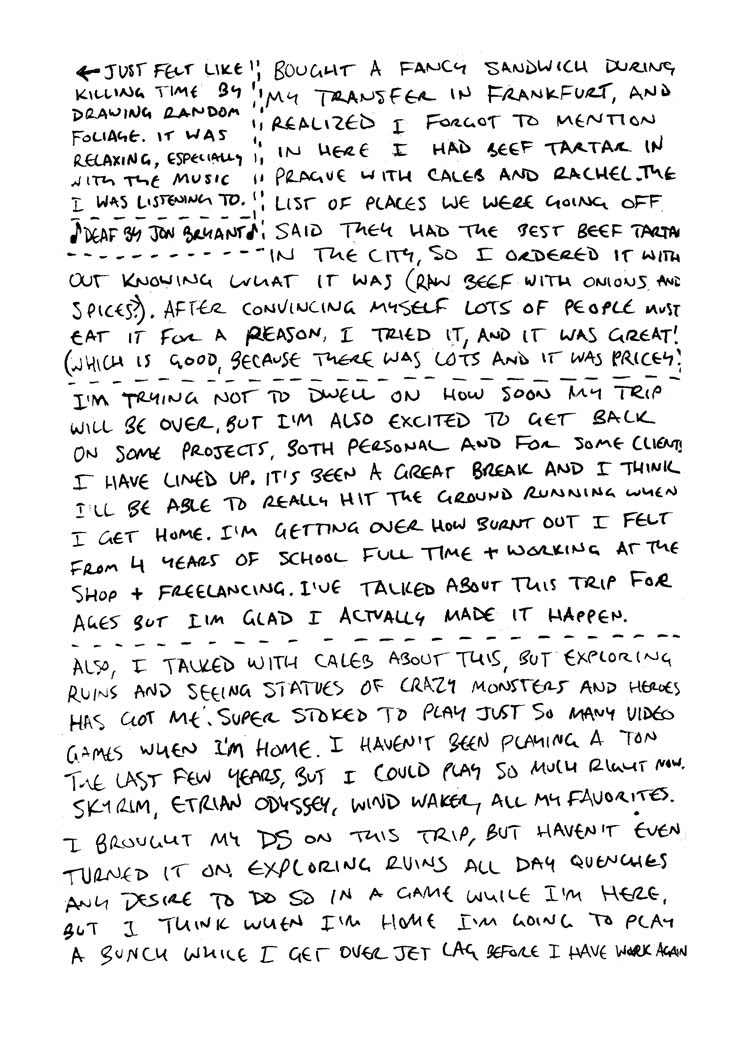 ← JUST FELT LIKE
KILLING TIME BY
DRAWING RANDOM
FOLIAGE. IT WAS
RELAXING, ESPECIALLY
WITH THE MUSIC
I WAS LISTENING TO.
♪DEAF BY JON BRYANT♪
BOUGHT A FANCY SANDWICH DURING
MY TRANSFER IN FRANKFURT, AND
REALIZED I FORGOT TO MENTION
IN HERE I HAD BEEF TARTAR IN
PRAGUE WITH CALEB AND RACHEL. THE
LIST OF PLACES WE WERE GOING OFF
SAID THEY HAD THE BEST BEEF TARTAR
IN THE CITY, SO I ORDERED IT WITH
OUT KNOWING WHAT IT WAS (RAW BEEF WITH ONIONS AND
SPICES?). AFTER CONVINCING MYSELF LOTS OF PEOPLE MUST
EAT IT FOR A REASON, I TRIED IT, AND IT WAS GREAT!
(WHICH IS GOOD, BECAUSE THERE WAS LOTS AND IT WAS PRICEY)
I'M TRYING NOT TO DWELL ON HOW SOON MY TRIP
WILL BE OVER, BUT I'M ALSO EXCITED TO GET BACK
ON SOME PROJECTS, BOTH PERSONAL AND FOR SOME CLIENTS
I HAVE LINED UP. IT'S BEEN A GREAT BREAK AND I THINK
I'LL BE ABLE TO REALLY HIT THE GROUND RUNNING WHEN
I GET HOME. I'M GETTING OVER HOW BURNT OUT I FELT
FROM 4 YEARS OF SCHOOL FULL TIME + WORKING AT THE
SHOP + FREELANCING. I'VE TALKED ABOUT THIS TRIP FOR
AGES BUT I'M GLAD I ACTUALLY MADE IT HAPPEN.
ALSO, I TALKED WITH CALEB ABOUT THIS, BUT EXPLORING
RUINS AND SEEING STATUES OF CRAZY MONSTERS AND HEROES
HAS GOT ME SUPER STOKED TO PLAY JUST SO MANY VIDEO
GAMES WHEN I'M HOME. I HAVEN'T BEEN PLAYING A TON
THE LAST FEW YEARS, BUT I COULD PLAY SO MUCH RIGHT NOW.
SKYRIM, ETRIAN ODYSSEY, WIND WAKER, ALL MY FAVORITES.
I BROUGHT MY DS ON THIS TRIP, BUT HAVEN'T EVEN
TURNED IT ON. EXPLORING RUINS ALL DAY QUENCHES
ANY DESIRE TO DO SO IN A GAME WHILE I'M HERE,
BUT I THINK WHEN I'M HOME I'M GOING TO PLAY
A BUNCH WHILE I GET OVER JET LAG BEFORE I HAVE WORK AGAIN